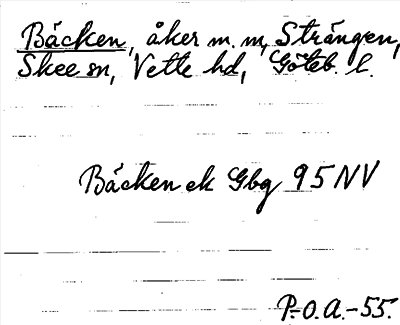 Bäcken, åker m. m, Strängen,
Skee sn, Vette hd, Göteb. l.
Bäcken ek Gbg 95 NV
P.-O. A. -55.